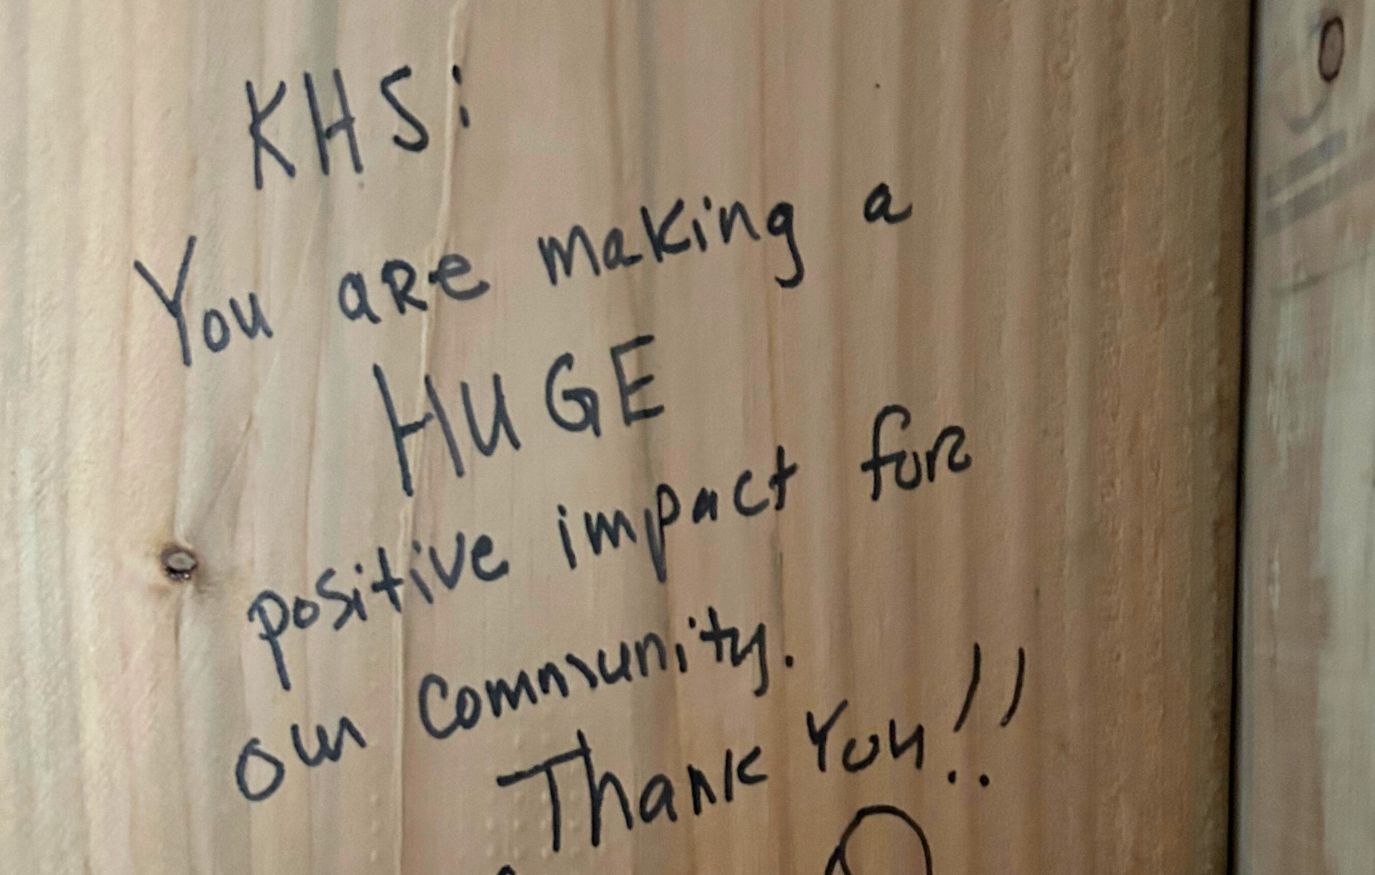 KHS:
You are making a
HUGE
positive impact for
our community.
Thank You!!